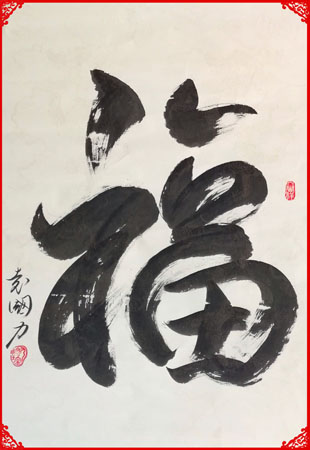 福
袁國力